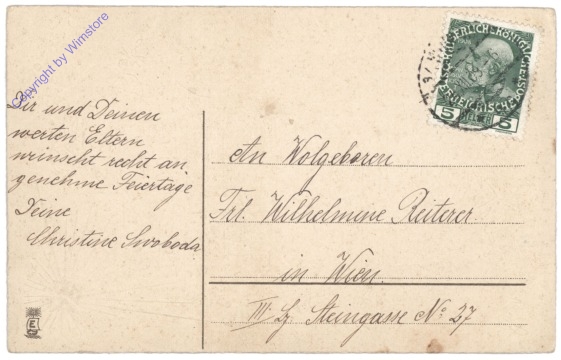 Copyright by Wimstore
Dir und Deinen
werten Eltern
wünscht recht an,
genehme Feiertage
Deine
Christine Swoboda
KAISERLICHE KÖNIGLICHE ÖSTERREICHISCHE
5 5
An Wolgeboren
Frl. Wilhelmine Reiterer.
in Wien.
III. Bz. Steingasse No 37
E